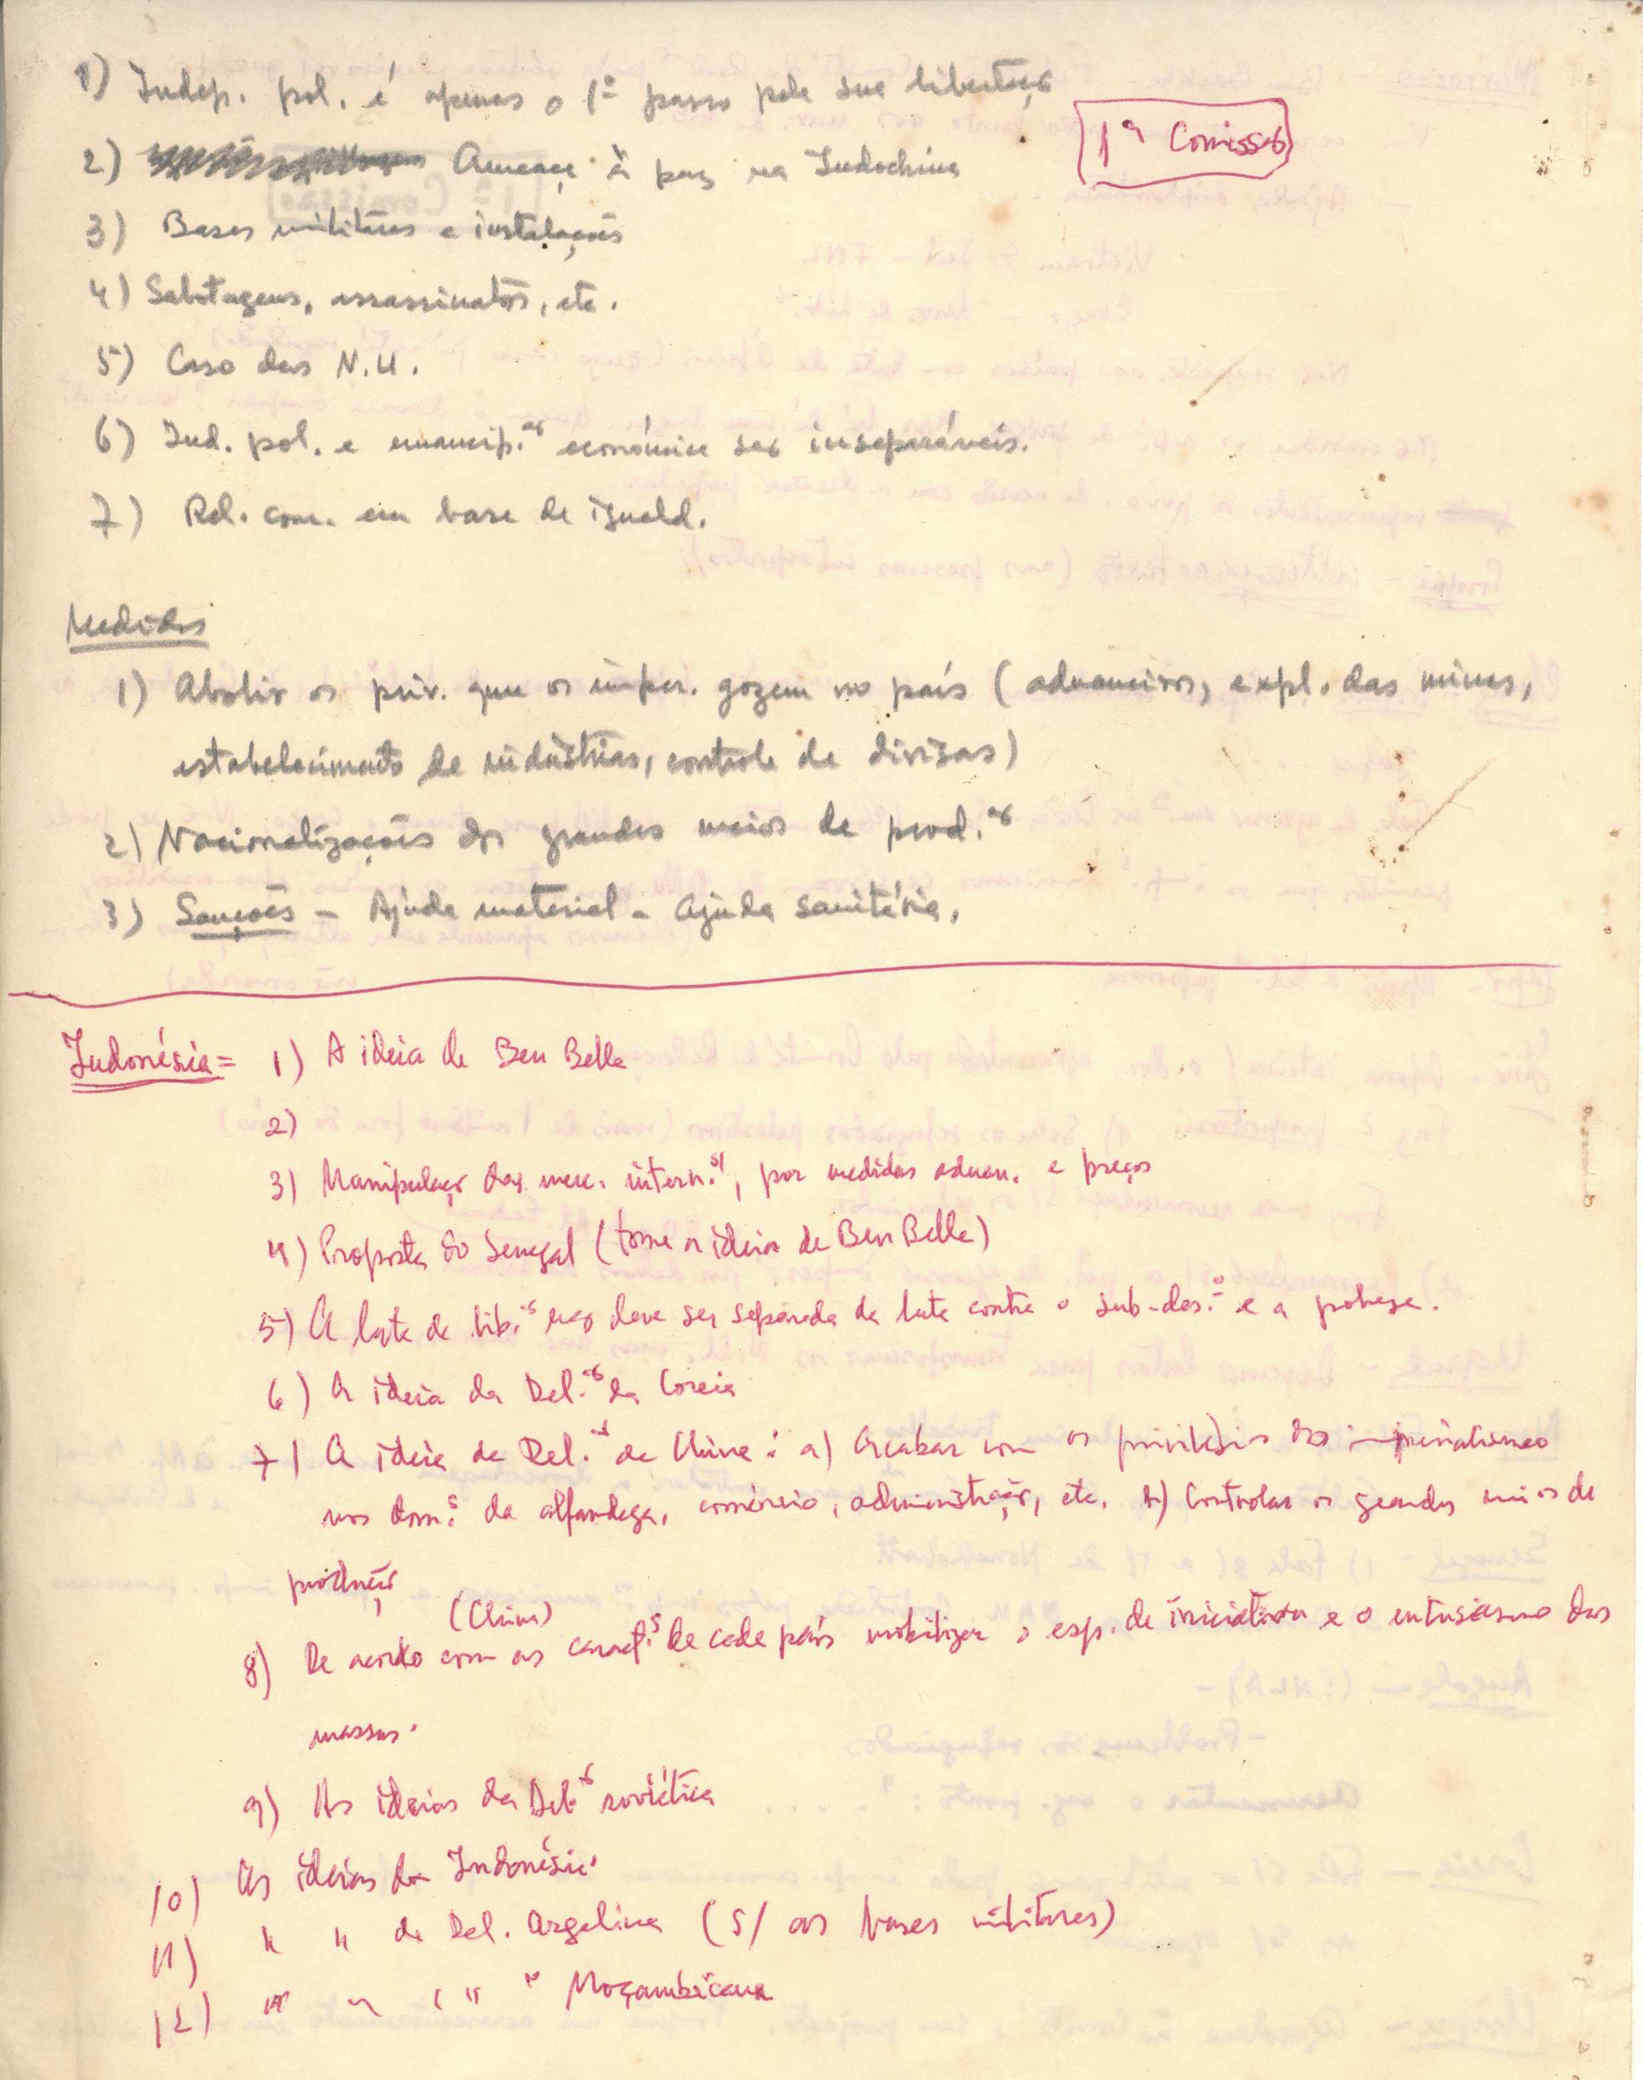 1) Indep. pol. é apenas o 1º passo pela sua libertação
1ª Comissão
2) Ameaça à paz na Indochina
3) Bases militares e instalações
4) Sabotagens, assassinatos, etc.
5) Caso das N.U.
6) Ind. pol. e emancip.ão económica são inseparáveis.
7) Rel. com. em base de iguald.
Medidas
1) Abolir os priv. que os imper. gozam no país (aduaneiros, expl. das minas,
estabelecimento de indústrias, controle de divisas)
2) Nacionalizações dos grandes meios de prod.ão
3) Sanções - Ajuda material - Ajuda sanitária.
Indonésia = 1) A ideia de Ben Bella
2)
3) Manipulação dos merc. intern.s, por medidas aduan. e preços
4) Proposta do Senegal (tome a ideia de Ben Bella)
5) A luta de lib. não deve ser separada da luta contra o sub-des.o e a pobreza.
6) A ideia da Del.ão da Coreia
7) A ideia da Del.ão da China: a) Acabar com os privilégios dos imperialismo
nos dom.s da alfandega, comércio, administração, etc. b) Controlar os grandes meios de
produção
(China)
8) De acordo com as caract.s de cada país mobilizar o esp. de iniciativa e o entusiasmo das
massas.
9) As ideias da Del.ão soviética
10) As ideias da Indonésia.
11) " " da Del. Argelina (s/ as bases militares)
12) " " " " " Moçambicana